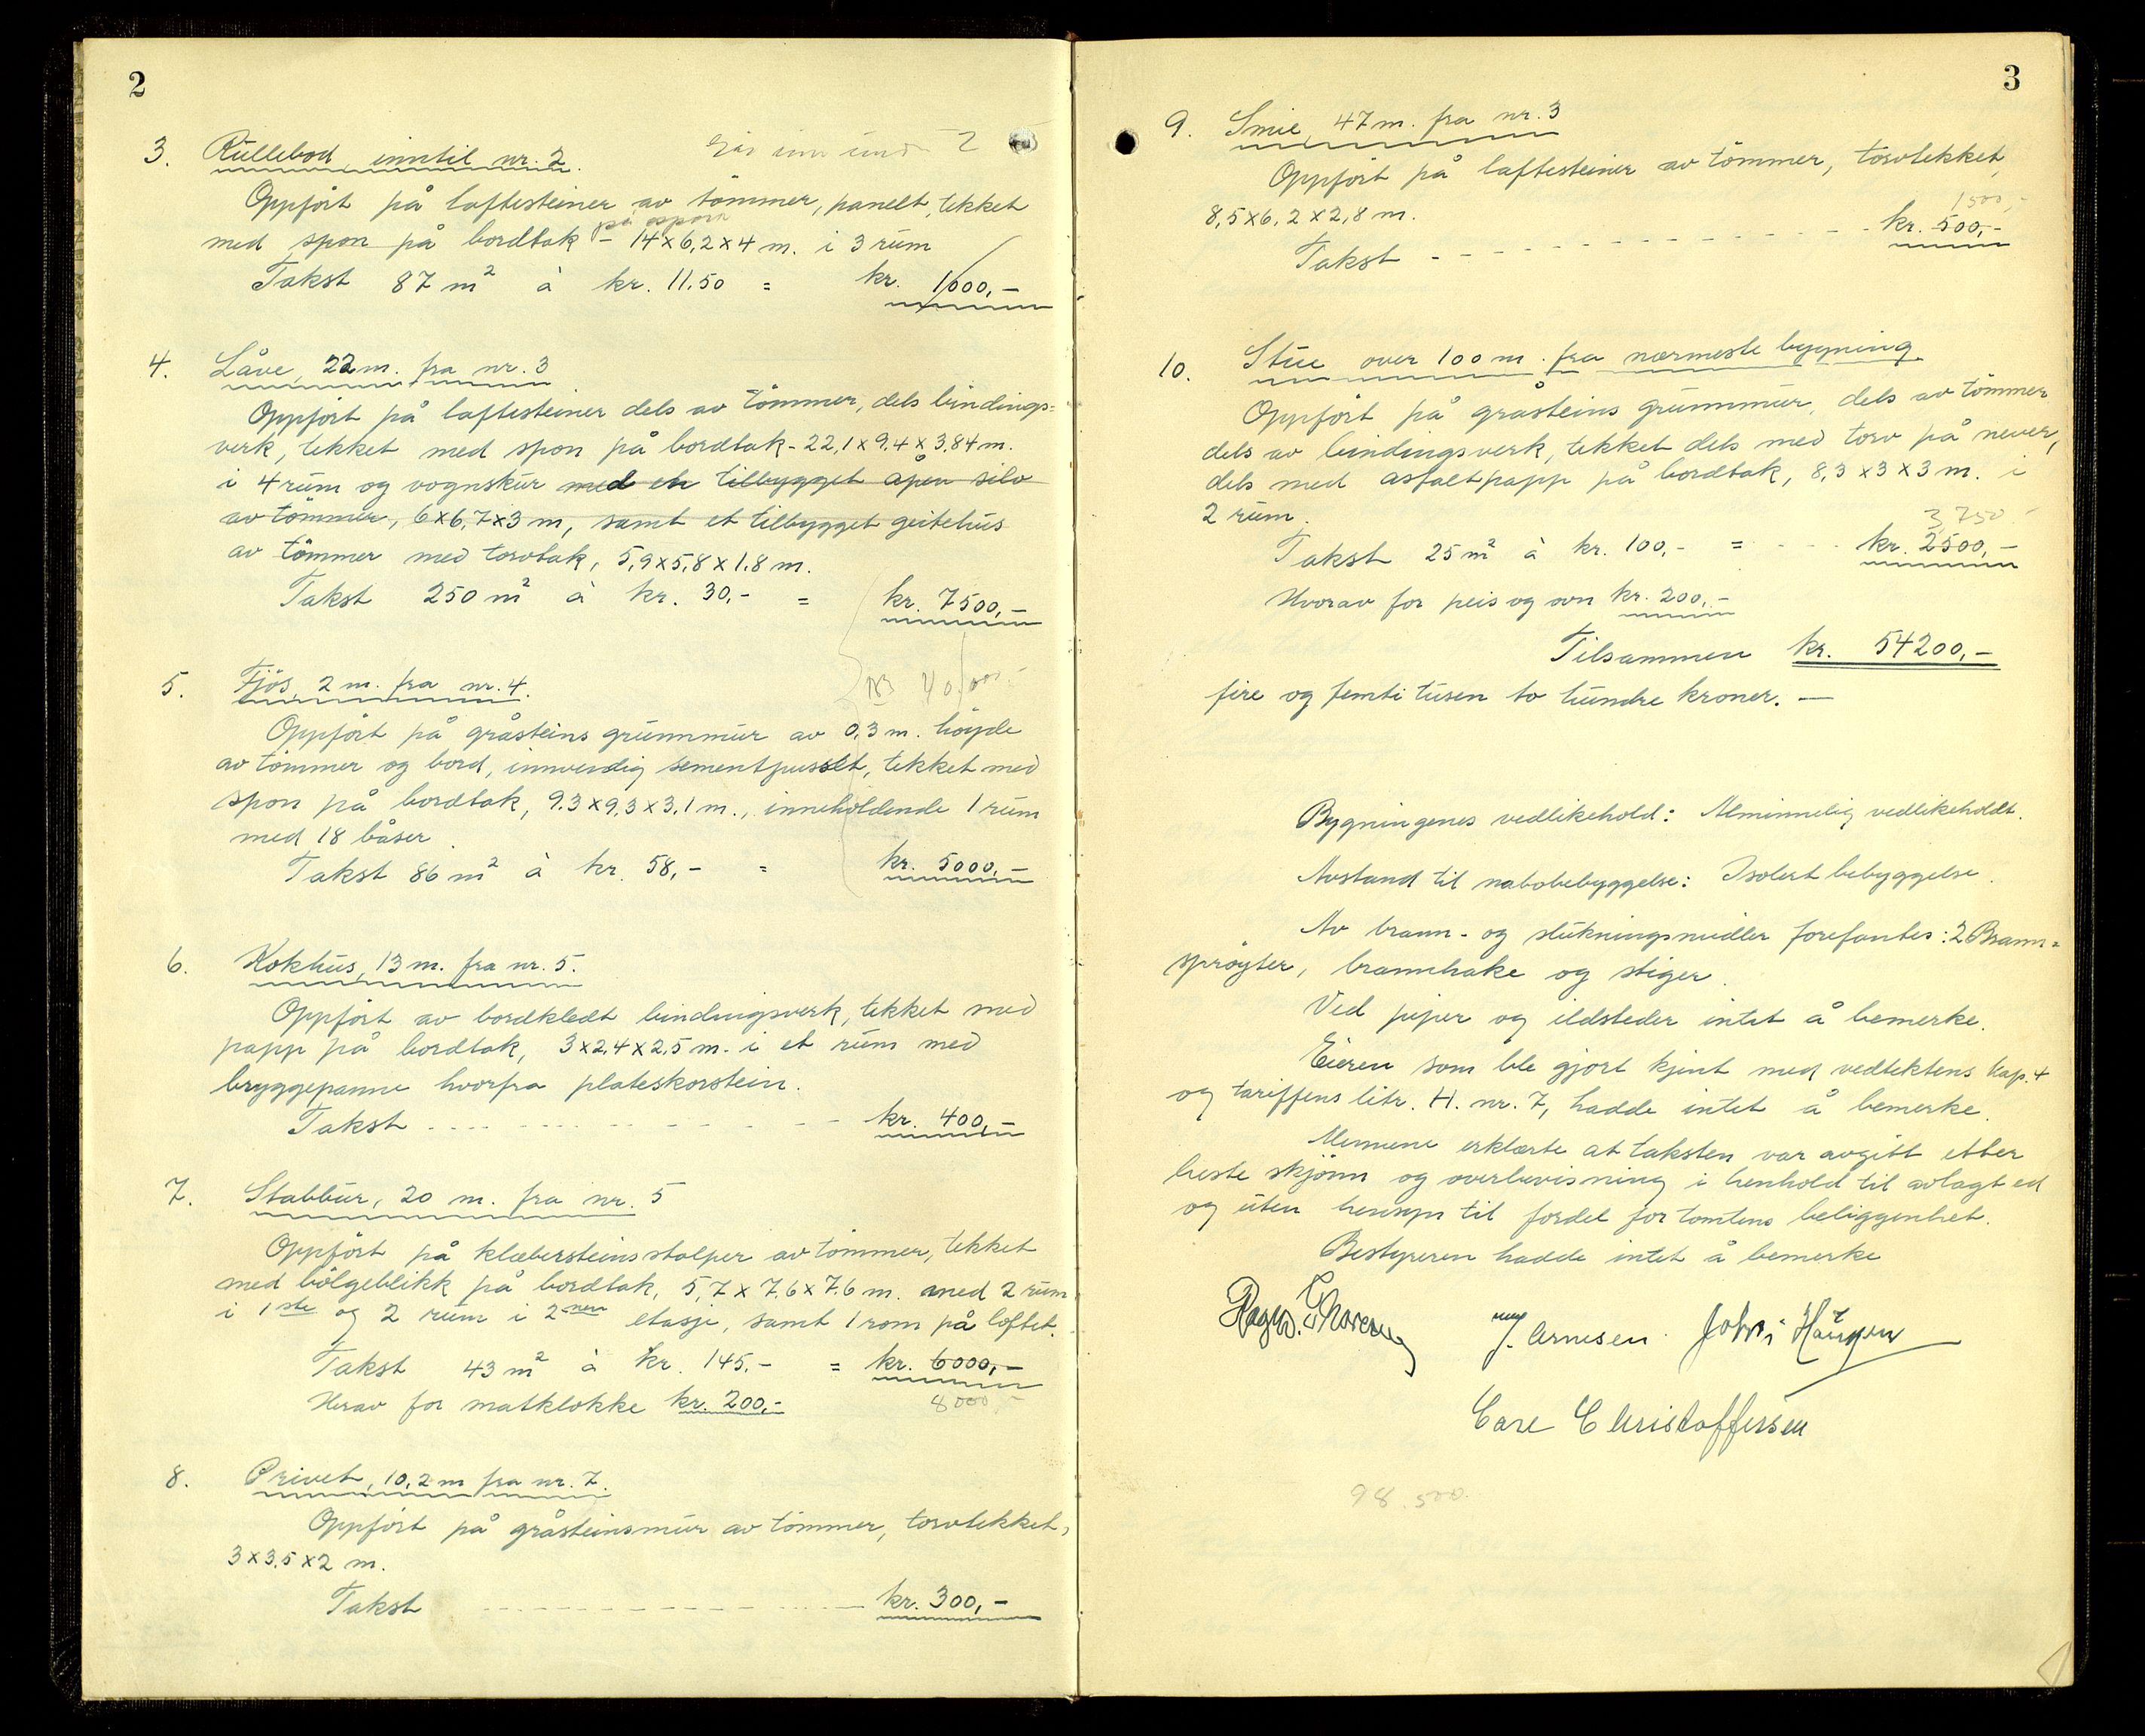 2
3. Rullebod, inntil nr. 2.
Går inn under 2
Oppført på laftesteiner av tømmer, panelt, tekket
på spon
med spon på bordtak - 14 x 6,2 x 4 m. i 3 rum
Takst 87 m² à kr. 11.50 = kr. 1000,-
4. Låve, 22 m. fra nr. 3
Oppført på laftesteiner dels av tømmer, dels bindings-
verk, tekket med spon på bordtak - 22,1 x 9,4 x 3,84 m.
i 4 rum og vognskur med en tilbygget åpen silo
av tømmer, 6 x 6,7 x 3 m, samt et tilbygget geitehus
av tømmer med torvtak, 5,9 x 5,8 x 1,8 m.
Takst 250 m² à kr. 30,- = kr. 7500,-
40000,-
5. Fjös, 2 m. fra nr. 4.
Oppført på gråsteins grunnmur av 0,3 m. høyde
av tømmer og bord, innvendig sementpusset, tekket med
spon på bordtak, 9.3 x 9,3 x 3,1 m., inneholdende 1 rum
med 18 båser.
Takst 86 m² à kr. 58,- = kr. 5000,-
6. Kokhus, 13 m. fra nr. 5.
Oppført av bordkledt bindingsverk, tekket med
papp på bordtak, 3 x 2,4 x 2,5 m. i et rum med
bryggepanne hvorfra plateskorstein.
Takst kr. 400,-
7. Stabbur, 20 m. fra nr. 5
Oppført på klebersteinsstolper av tømmer, tekket
med bölgeblikk på bordtak, 5,7 x 7,6 x 7.6 m. med 2 rum
i 1ste og 2 rum i 2nen etasje, samt 1 rom på loftet.
Takst 43 m² à kr. 145,- = kr. 6000,-
Herav for matklokke kr. 200,-
8000,-
8. Privet, 10,2 m fra nr. 7.
Oppført på gråsteinsmur av tømmer, torvtekket,
3 x 3,5 x 2 m.
Takst kr. 300,-
3
9. Smie, 47 m. fra nr. 3
Oppført på laftesteiner av tömmer, torvtekket,
8,5 x 6,2 x 2,8 m.
1500,-
Takst kr. 500,-
10. Stue over 100 m. fra nærmeste bygning
Oppført på gråsteins grunnmur, dels av tömmer
dels av bindingsverk, tekket dels med torv på never,
dels med asfaltpapp på bordtak, 8,3 x 3 x 3 m. i
2 rum.
3,750 -
Takst 25 m² à kr. 100,- = kr. 2500,-
Hvorav for peis og ovn kr. 200,-
Tilsammen kr. 54200,-
fire og femti tusen to hundre kroner. —
Bygningenes vedlikehold: Alminnelig vedlikeholdt.
Avstand til nabobebyggelse: Isolert bebyggelse.
Av brann- og slukningsmidler forefantes: 2 Brann-
sprøyter, brannhake og stiger.
Ved piper og ildsteder intet å bemerke.
Eieren som ble gjort kjent med vedtektens kap. 4
og tariffens litr. H. nr. 7, hadde intet å bemerke.
Mennene erklærte at taksten var avgitt etter
beste skjønn og overbevisning i henhold til avlagt ed
og uten hensyn til fordel for tomtens beliggenhet.
Bestyreren hadde intet å bemerke
J. Arnesen John Haugen
Care Christoffersen
98.500.